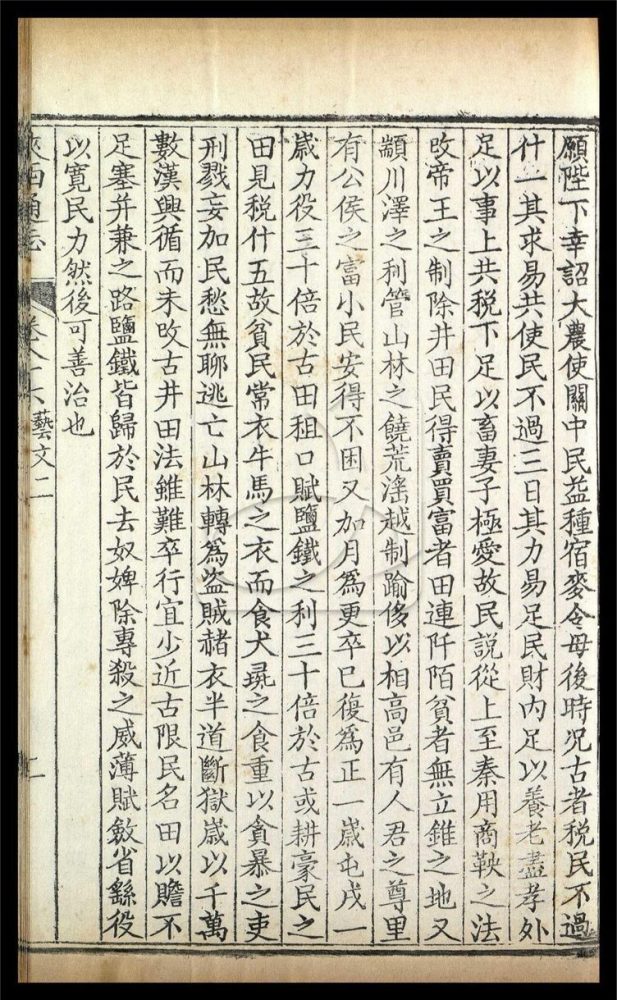 願陛下幸詔大農使關中民益種宿麥令毋後時况古者稅民不過
什一其求易共使民不過三日其力易足民財内足以養老盡孝外
足以事上共稅下足以畜妻子極愛故民說從上至秦用商鞅之法
攺帝王之制除井田民得賣買富者田連阡陌貧者無立錐之地又
顓川澤之利管山林之饒荒滛越制踰侈以相高邑有人君之尊里
有公侯之富小民安得不困又加月爲更卒已復爲正一歲屯戌一
歲力役三十倍於古田租口賦鹽鐵之利三十倍於古或耕豪民之
田見稅什五故貧民常衣牛馬之衣而食犬彘之食重以貪暴之吏
刑戮妄加民愁無聊逃亡山林轉爲盗賊赭衣半道斷獄歲以千萬
數漢興循而未攺古井田法雖難卒行宜少近古限民名田以贍不
足塞并兼之路鹽鐵皆歸於民去奴婢除專殺之威薄賦斂省繇役
以寛民力然後可善治也
陝西通志 卷八十六 藝文二 二